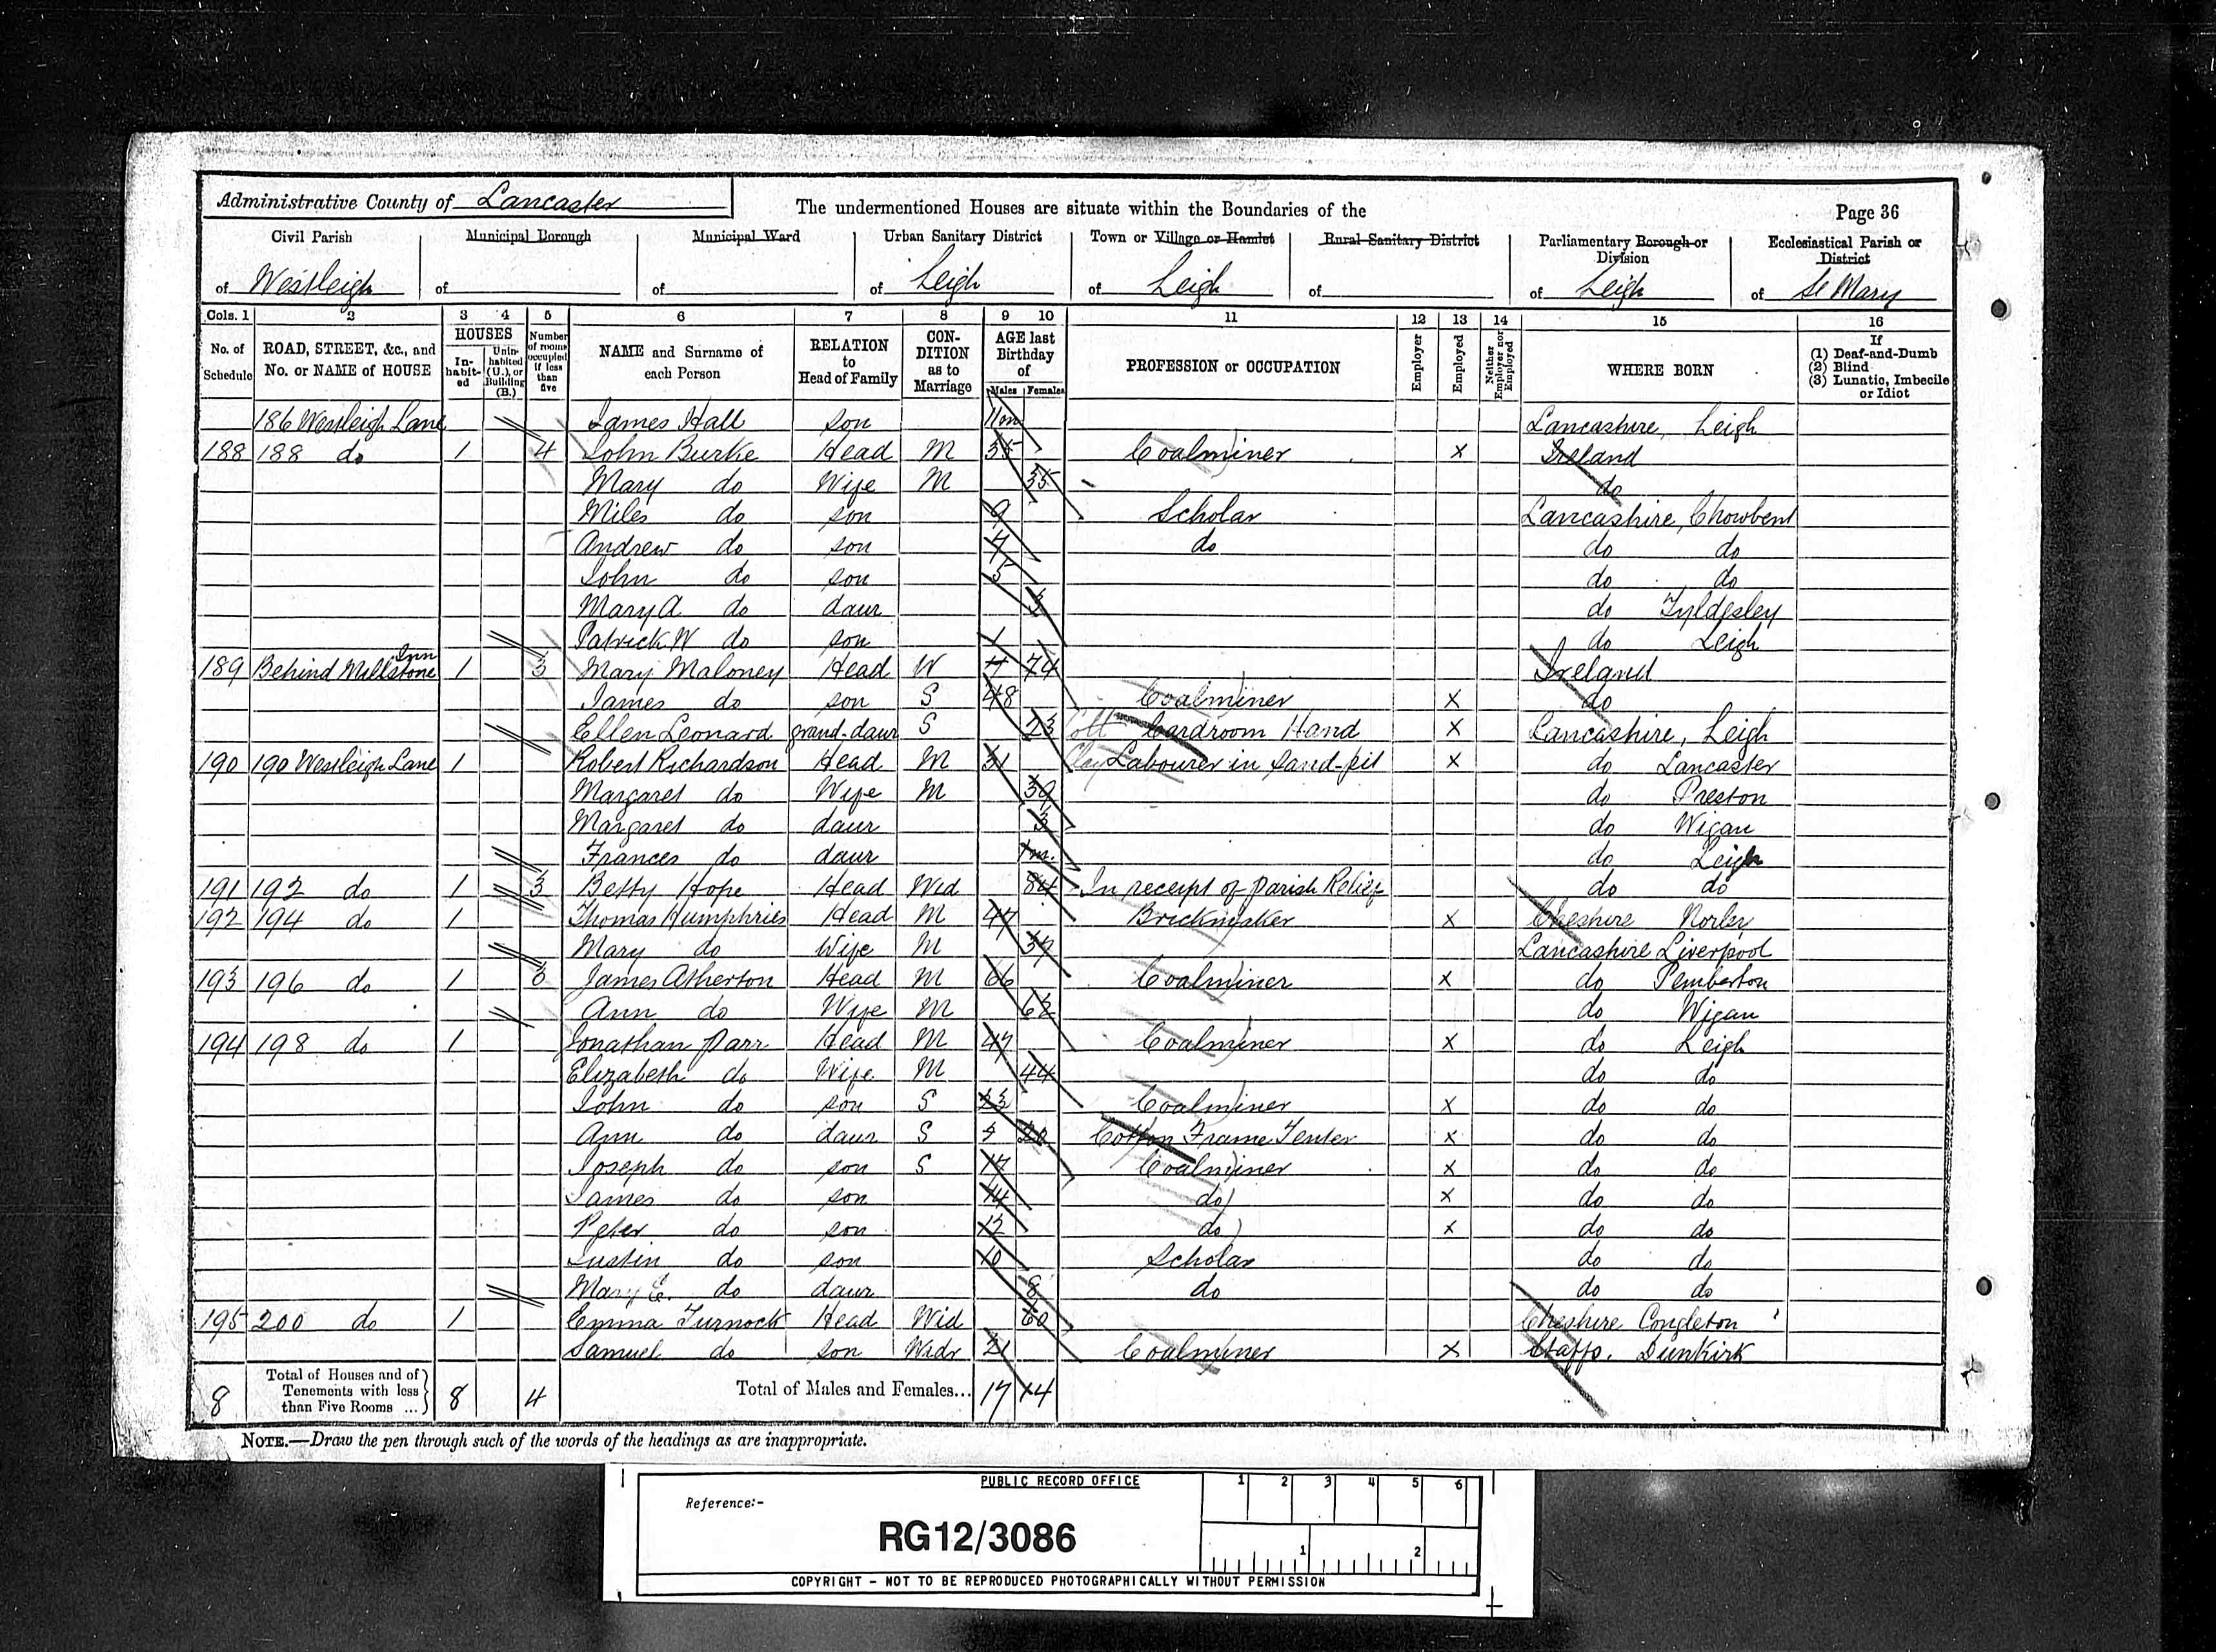 Administrative County of Lancaster The undermentioned Houses are situate within the Boundaries of the Page 36
Civil Parish Municipal Borough Municipal Ward Urban Sanitary District Town or Village or Hamlet Rural Sanitary District Parliamentary Borough or Division Ecclesiastical Parish or District
of Westleigh of of of Leigh of Leigh of of Leigh of St Mary
Cols. 1 2 3 4 5 6 7 8 9 10 11 12 13 14 15 16
No. of Schedule ROAD, STREET, &c., and No. or NAME of HOUSE HOUSES Inhabited Uninhabited (U.), or Building (B.) Number of rooms occupied if less than five NAME and Surname of each Person RELATION to Head of Family CONDITION as to Marriage AGE last Birthday of Males Females PROFESSION or OCCUPATION Employer Employed Neither Employer nor Employed WHERE BORN If (1) Deaf-and-Dumb (2) Blind (3) Lunatic, Imbecile or Idiot
186 Westleigh Lane James Hall son 11m Lancashire, Leigh
188 188 do 1 4 John Burke Head M 35 Coalminer x Ireland
Mary do Wife M 35 do
Miles do son 9 Scholar Lancashire, Chowbent
Andrew do son do do do
John do son 5 do do
Mary A do daur 3 do Tyldesley
Patrick W do son 1 do Leigh
189 Behind Millstone Inn 1 3 Mary Maloney Head W 74 Ireland
James do son S 48 Coalminer x do
Ellen Leonard grand-daur S 23 Cott Cardroom Hand x Lancashire, Leigh
190 190 Westleigh Lane 1 Robert Richardson Head M 31 Clay Labourer in sand-pit x do Lancaster
Margaret do Wife M 39 do Preston
Margaret do daur 3 do Wigan
Frances do daur 1m. do Leigh
191 192 do 1 3 Betty Hope Head Wid 84 In receipt of parish Relief do do
192 194 do 1 Thomas Humphries Head M 47 Brickmaker x Cheshire Norley
Mary do Wife M 37 Lancashire Liverpool
193 196 do 1 3 James Atherton Head M 66 Coalminer x do Pemberton
Ann do Wife M 62 do Wigan
194 198 do 1 Jonathan Parr Head M 47 Coalminer x do Leigh
Elizabeth do Wife M 44 do do
John do son S 23 Coalminer x do do
Ann do daur S 20 Cotton Frame Tenter x do do
Joseph do son S 17 Coalminer x do do
James do son 14 do x do do
Peter do son 12 do x do do
Justin do son 10 Scholar do do
Mary E. do daur 8 do do do
195 200 do 1 Emma Turnock Head Wid 60 Cheshire Congleton
Samuel do son Widr 21 Coalminer x Staffs. Dunkirk
8 Total of Houses and of Tenements with less than Five Rooms ... 8 4 Total of Males and Females... 17 14
NOTE.—Draw the pen through such of the words of the headings as are inappropriate.
PUBLIC RECORD OFFICE 1 2 3 4 5 6
Reference:-
RG12/3086
1 2
COPYRIGHT - NOT TO BE REPRODUCED PHOTOGRAPHICALLY WITHOUT PERMISSION